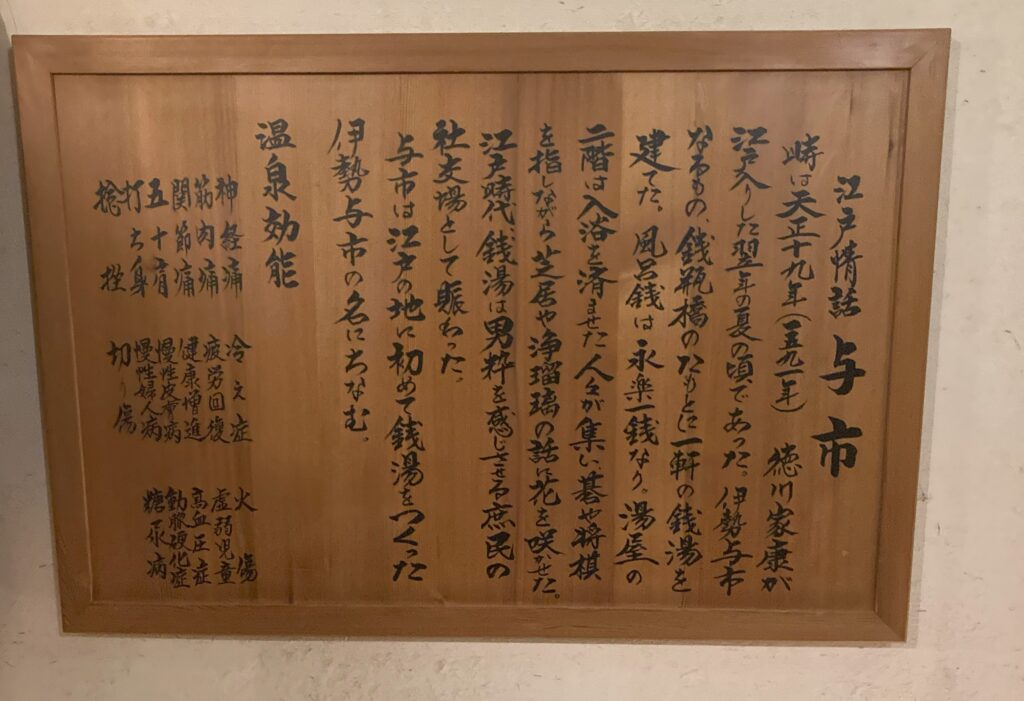 江戸情話 与市
時は天正十九年（一五九一年） 徳川家康が
江戸入りした翌年の夏の頃であった。伊勢与市
なるもの、銭瓶橋のたもとに一軒の銭湯を
建てた。風呂銭は永楽一銭なり。湯屋の
二階は入浴を済ませた人々が集い、碁や将棋
を指しながら芝居や浄瑠璃の話に花を咲かせた。
江戸時代、銭湯は男粋を感じさせる庶民の
社交場として賑わった。
与市は江戸の地に初めて銭湯をつくった
伊勢与市の名にちなむ。
温泉効能
神経痛 冷え症 火傷
筋肉痛 疲労回復 虚弱児童
関節痛 健康増進 高血圧症
五十肩 慢性皮膚病 動脈硬化症
打ち身 慢性婦人病 糖尿病
捻挫 切り傷